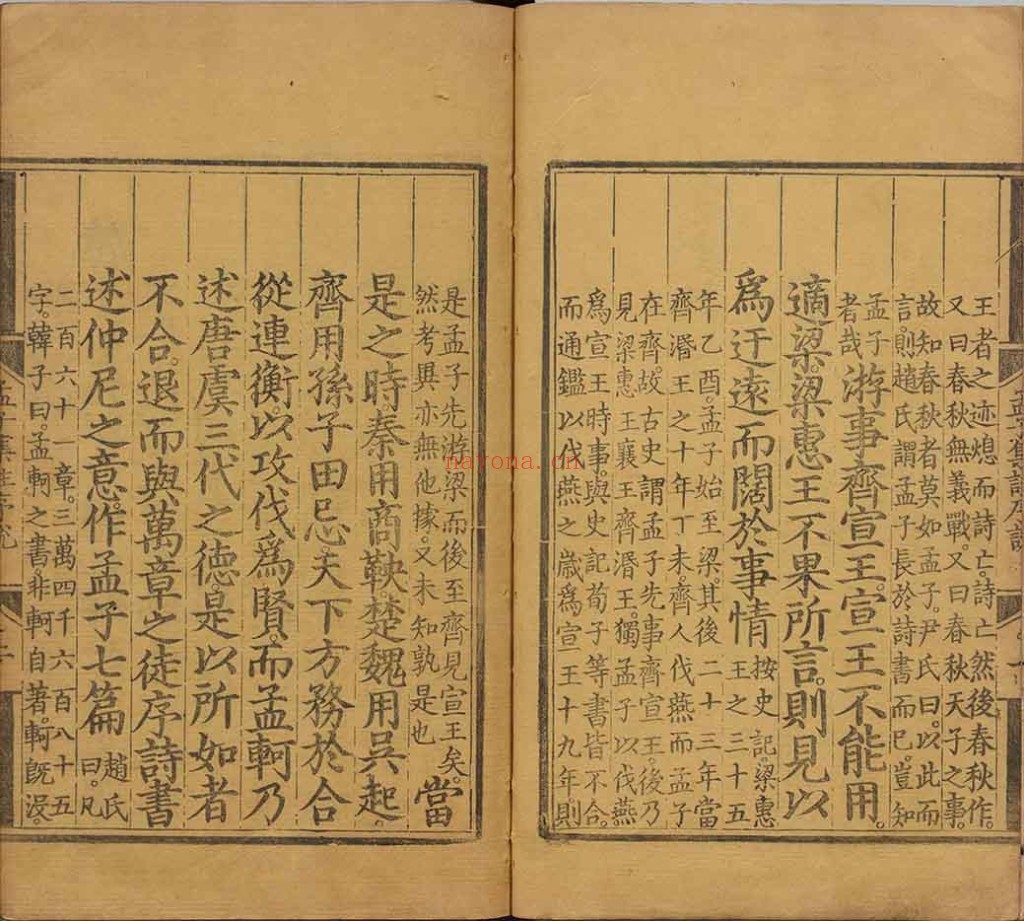 王者之迹熄而詩亡詩亡然後春秋作。
又曰春秋無義戰。又曰春秋天子之事。
故知春秋者莫如孟子。尹氏曰。以此而
言。則趙氏謂孟子長於詩書而已。豈知
孟子
者哉
游事齊宣王。宣王不能用。
適梁。梁惠王不果所言。則見以
爲迂遠而闊於事情
按史記。梁惠
王之三十五
年乙酉。孟子始至梁。其後二十三年當
齊湣王之十年丁未。齊人伐燕而孟子
在齊。故古史謂孟子先事齊宣王。後乃
見梁惠王襄王齊湣王。獨孟子以伐燕
爲宣王時事。與史記荀子等書皆不合。
而通鑑以伐燕之歲爲宣王十九年則
是孟子先游梁而後至齊見宣王矣。
然考異亦無他據。又未知孰是也
當
是之時。秦用商鞅。楚魏用吳起。
齊用孫子田忌。天下方務於合
從連衡。以攻伐爲賢。而孟軻乃
述唐虞三代之德。是以所如者
不合。退而與萬章之徒序詩書
述仲尼之意。作孟子七篇
趙氏
曰。凡
二百六十一章。三萬四千六百八十五
字。韓子曰。孟軻之書。非軻自著。軻旣沒。
nayona.cn